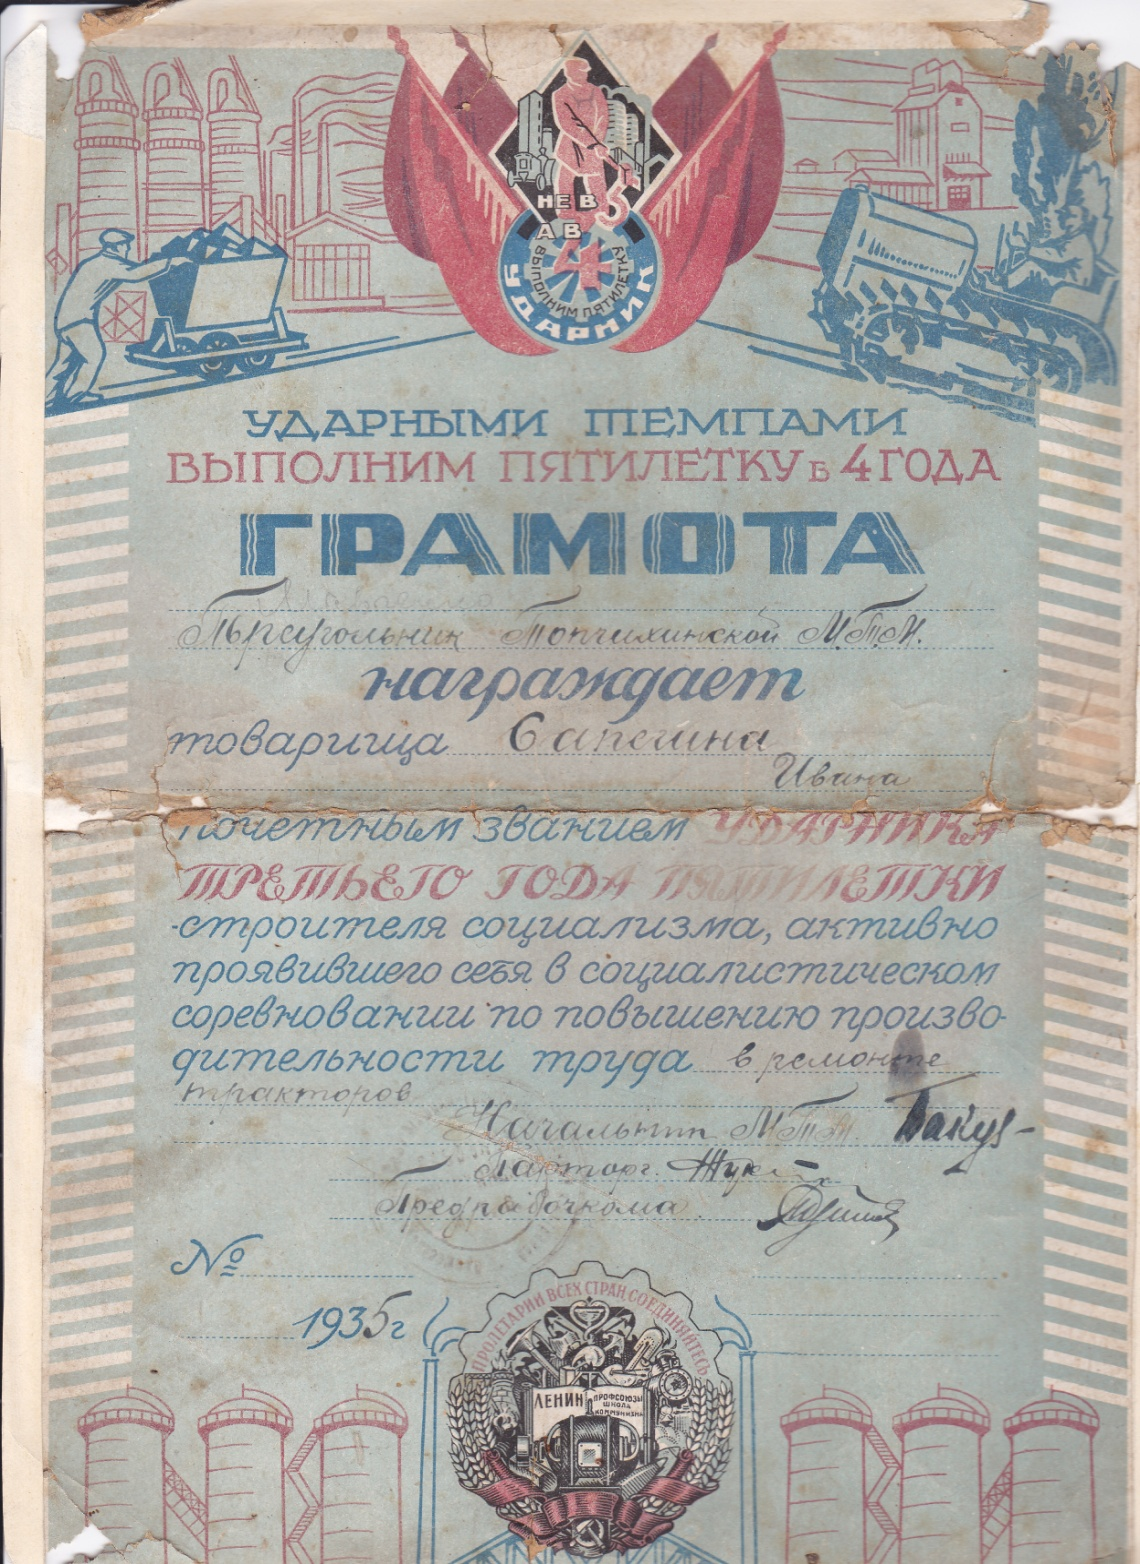 НЕ В 5
А В 4
ВЫПОЛНИМ ПЯТИЛЕТКУ
УДАРНИК
УДАРНЫМИ ТЕМПАМИ
ВЫПОЛНИМ ПЯТИЛЕТКУ в 4 ГОДА
ГРАМОТА
Топчихинской М.Т.М.
награждает
товарища Сапегина
Ивана
почетным званием УДАРНИКА
ТРЕТЬЕГО ГОДА ПЯТИЛЕТКИ
-строителя социализма, активно
проявившего себя в социалистическом
соревновании по повышению произво-
дительности труда в ремонте
тракторов
Начальник МТМ.
Парторг. Жук
Предрабочкома
№
1935 г
ПРОЛЕТАРИИ ВСЕХ СТРАН СОЕДИНЯЙТЕСЬ
ЛЕНИН ПРОФСОЮЗЫ
ШКОЛА
КОММУНИЗМА